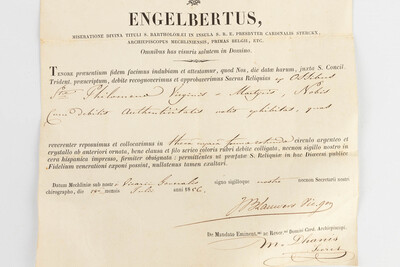 ENGELBERTUS,
MISERATIONE DIVINA TITULI S. BARTHOLOMÆI IN INSULA S. R. E. PRESBYTER CARDINALIS STERCKX,
ARCHIEPISCOPUS MECHLINIENSIS, PRIMAS BELGII, ETC.
Omnibus has visuris salutem in Domino.
TENORE præsentium fidem facimus indubiam et attestamur, quod Nos, die datæ harum, juxta S. Concil.
Trident. præscriptum, debite recognoverimus et approbaverimus Sacras Reliquias ex Ossibus
Philomenæ Virginis et Martyris, Nobis
Cum debitis Authenticitatis notis exhibitas, quas
reverenter reposuimus et collocavimus in theca cuprea forma rotunda circulo argenteo et
crystallo ab anteriori ornato, bene clausa et filo serico coloris rubri debite colligato, necnon sigillo nostro in
cera hispanica impresso, firmiter obsignata; permittimus ut præfatæ S. Reliquiæ in hac Diœcesi publicæ
Fidelium venerationi exponi possint, nullatenus tamen exaltari.
Datum Mechliniæ sub nostri Vicarii Generalis signo sigilloque nostro necnon Secretarii nostri
chirographo, die mensis Julii anni 18
De Mandato Eminent. ac Rever. Domini Card. Archiepiscopi.